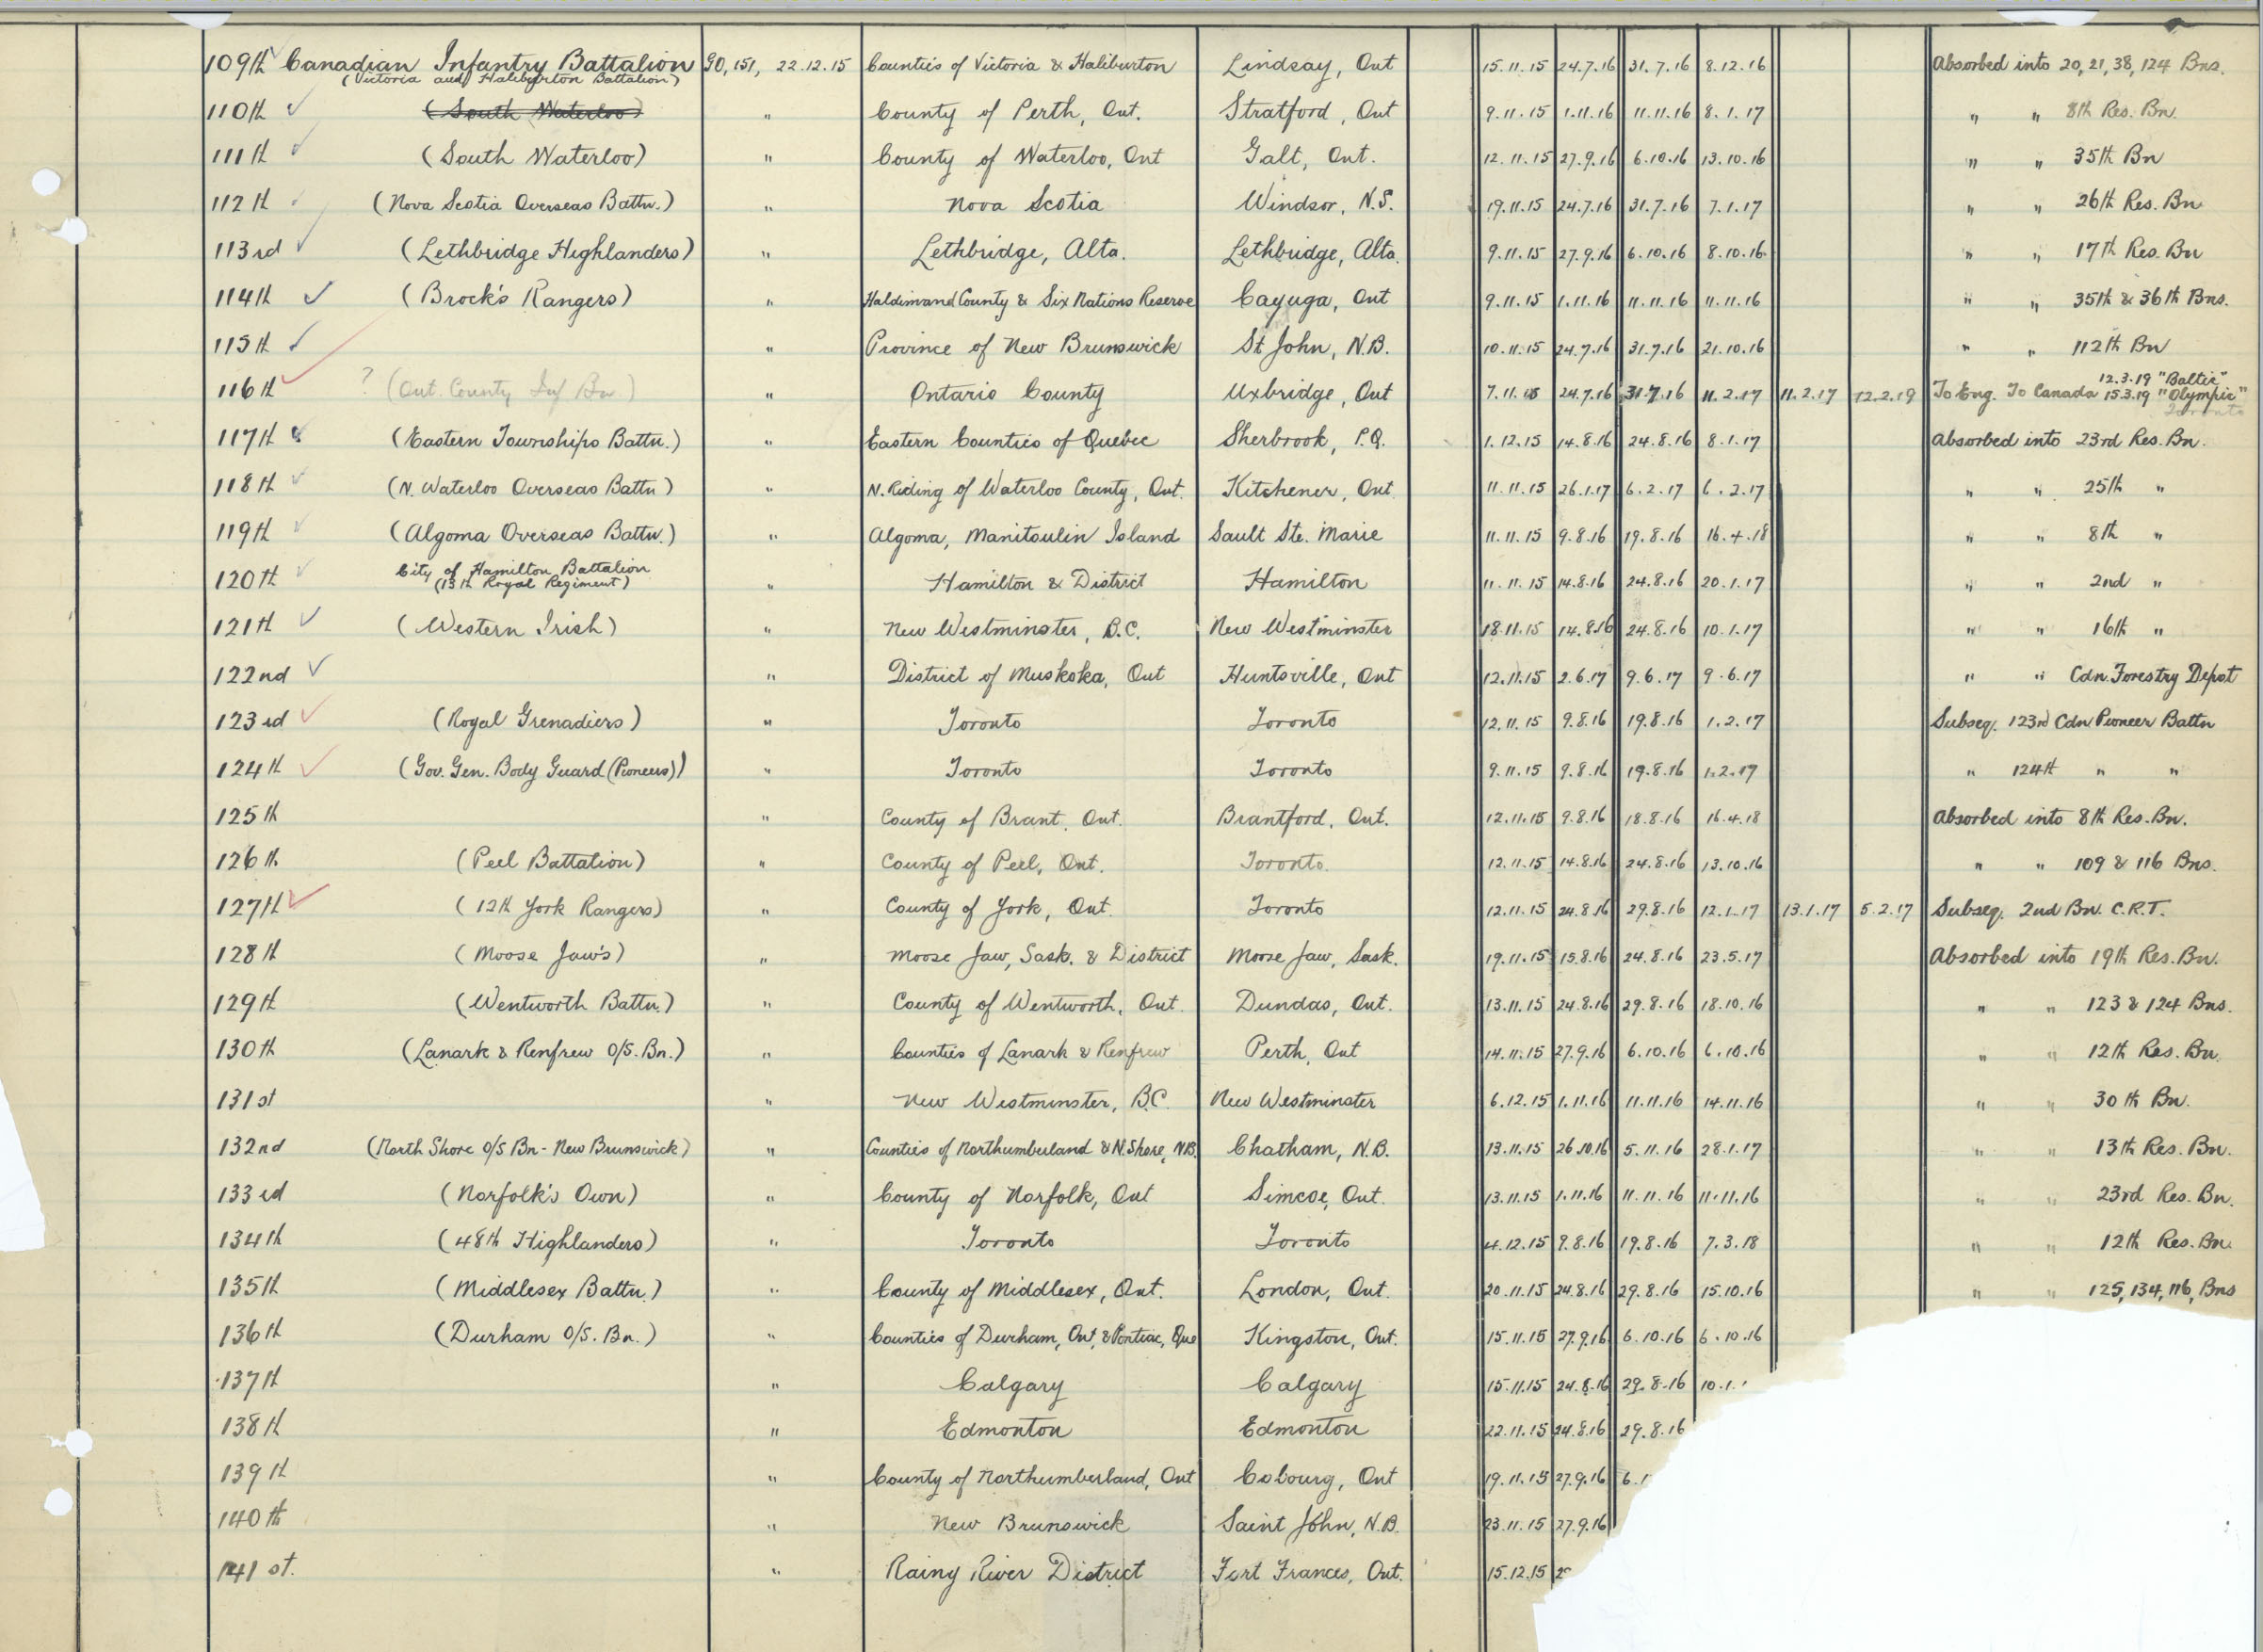 109th Canadian Infantry Battalion 90, 151, 22.12.15 Counties of Victoria & Haliburton Lindsay, Ont 15.11.15 24.7.16 31.7.16 8.12.16 Absorbed into 20, 21, 38, 124 Bns.
(Victoria and Haliburton Battalion)
110th (South Waterloo) " County of Perth, Ont. Stratford, Ont 9.11.15 1.11.16 11.11.16 8.1.17 " " 8th Res. Bn.
111th (South Waterloo) " County of Waterloo, Ont Galt, Ont. 12.11.15 27.9.16 6.10.16 13.10.16 " " 35th Bn
112th (Nova Scotia Overseas Battn.) " Nova Scotia Windsor, N.S. 19.11.15 24.7.16 31.7.16 7.1.17 " " 26th Res. Bn
113rd (Lethbridge Highlanders) " Lethbridge, Alta. Lethbridge, Alta. 9.11.15 27.9.16 6.10.16 8.10.16 " " 17th Res. Bn
114th (Brock's Rangers) " Haldimand County & Six Nations Reserve Cayuga, Ont 9.11.15 1.11.16 11.11.16 11.11.16 " " 35th & 36th Bns.
115th " Province of New Brunswick St John, N.B. 10.11.15 24.7.16 31.7.16 21.10.16 " " 112th Bn
12.3.19 "Baltic"
116th ? (Ont. County Inf Bn.) " Ontario County Uxbridge, Ont 7.11.15 24.7.16 31.7.16 11.2.17 11.2.17 12.2.19 To Eng. To Canada 15.3.19 "Olympic"
Toronto
117th (Eastern Townships Battn.) " Eastern Counties of Quebec Sherbrook, P.Q. 1.12.15 14.8.16 24.8.16 8.1.17 Absorbed into 23rd Res. Bn.
118th (N. Waterloo Overseas Battn) " N. Riding of Waterloo County, Ont. Kitchener, Ont. 11.11.15 26.1.17 6.2.17 6.2.17 " " 25th "
119th (Algoma Overseas Battn.) " Algoma, Manitoulin Island Sault Ste. Marie 11.11.15 9.8.16 19.8.16 16.4.18 " " 8th "
120th City of Hamilton Battalion " Hamilton & District Hamilton 11.11.15 14.8.16 24.8.16 20.1.17 " " 2nd "
(13th Royal Regiment)
121th (Western Irish) " New Westminster, B.C. New Westminster 18.11.15 14.8.16 24.8.16 10.1.17 " " 16th "
122nd " District of Muskoka, Ont Huntsville, Ont 12.11.15 2.6.17 9.6.17 9.6.17 " " Cdn. Forestry Depot
123rd (Royal Grenadiers) " Toronto Toronto 12.11.15 9.8.16 19.8.16 1.2.17 Subseq. 123rd Cdn Pioneer Battn
124th (Gov. Gen. Body Guard (Pioneers)) " Toronto Toronto 9.11.15 9.8.16 19.8.16 1.2.17 " 124th " "
125th " County of Brant, Ont. Brantford, Ont. 12.11.15 9.8.16 18.8.16 16.4.18 Absorbed into 8th Res. Bn.
126th (Peel Battalion) " County of Peel, Ont. Toronto 12.11.15 14.8.16 24.8.16 13.10.16 " " 109 & 116 Bns.
127th (12th York Rangers) " County of York, Ont. Toronto 12.11.15 24.8.16 29.8.16 12.1.17 13.1.17 5.2.17 Subseq. 2nd Bn. C.R.T.
128th (Moose Jaw's) " Moose Jaw, Sask. & District Moose Jaw, Sask. 19.11.15 15.8.16 24.8.16 23.5.17 Absorbed into 19th Res. Bn.
129th (Wentworth Battn.) " County of Wentworth, Ont. Dundas, Ont. 13.11.15 24.8.16 29.8.16 18.10.16 " " 123 & 124 Bns.
130th (Lanark & Renfrew O/S. Bn.) " Counties of Lanark & Renfrew Perth, Ont 14.11.15 27.9.16 6.10.16 6.10.16 " " 12th Res. Bn.
131st " New Westminster, B.C. New Westminster 6.12.15 1.11.16 11.11.16 14.11.16 " " 30th Bn.
132nd (North Shore O/S Bn - New Brunswick) " Counties of Northumberland & N. Shore, N.B. Chatham, N.B. 13.11.15 26.10.16 5.11.16 28.1.17 " " 13th Res. Bn.
133rd (Norfolk's Own) " County of Norfolk, Ont Simcoe, Ont. 13.11.15 1.11.16 11.11.16 11.11.16 " " 23rd Res. Bn.
134th (48th Highlanders) " Toronto Toronto 4.12.15 9.8.16 19.8.16 7.3.18 " " 12th Res. Bn.
135th (Middlesex Battn.) " County of Middlesex, Ont. London, Ont. 20.11.15 24.8.16 29.8.16 15.10.16 " " 125, 134, 116, Bns
136th (Durham O/S. Bn.) " Counties of Durham, Ont, & Pontiac, Que Kingston, Ont. 15.11.15 27.9.16 6.10.16 6.10.16
137th " Calgary Calgary 15.11.15 24.8.16 29.8.16 10.1.
138th " Edmonton Edmonton 22.11.15 24.8.16 29.8.16
139th " County of Northumberland, Ont Cobourg, Ont 19.11.15 27.9.16 6.1
140th " New Brunswick Saint John, N.B. 23.11.15 27.9.16
141st. " Rainy River District Fort Frances, Ont. 15.12.15 2